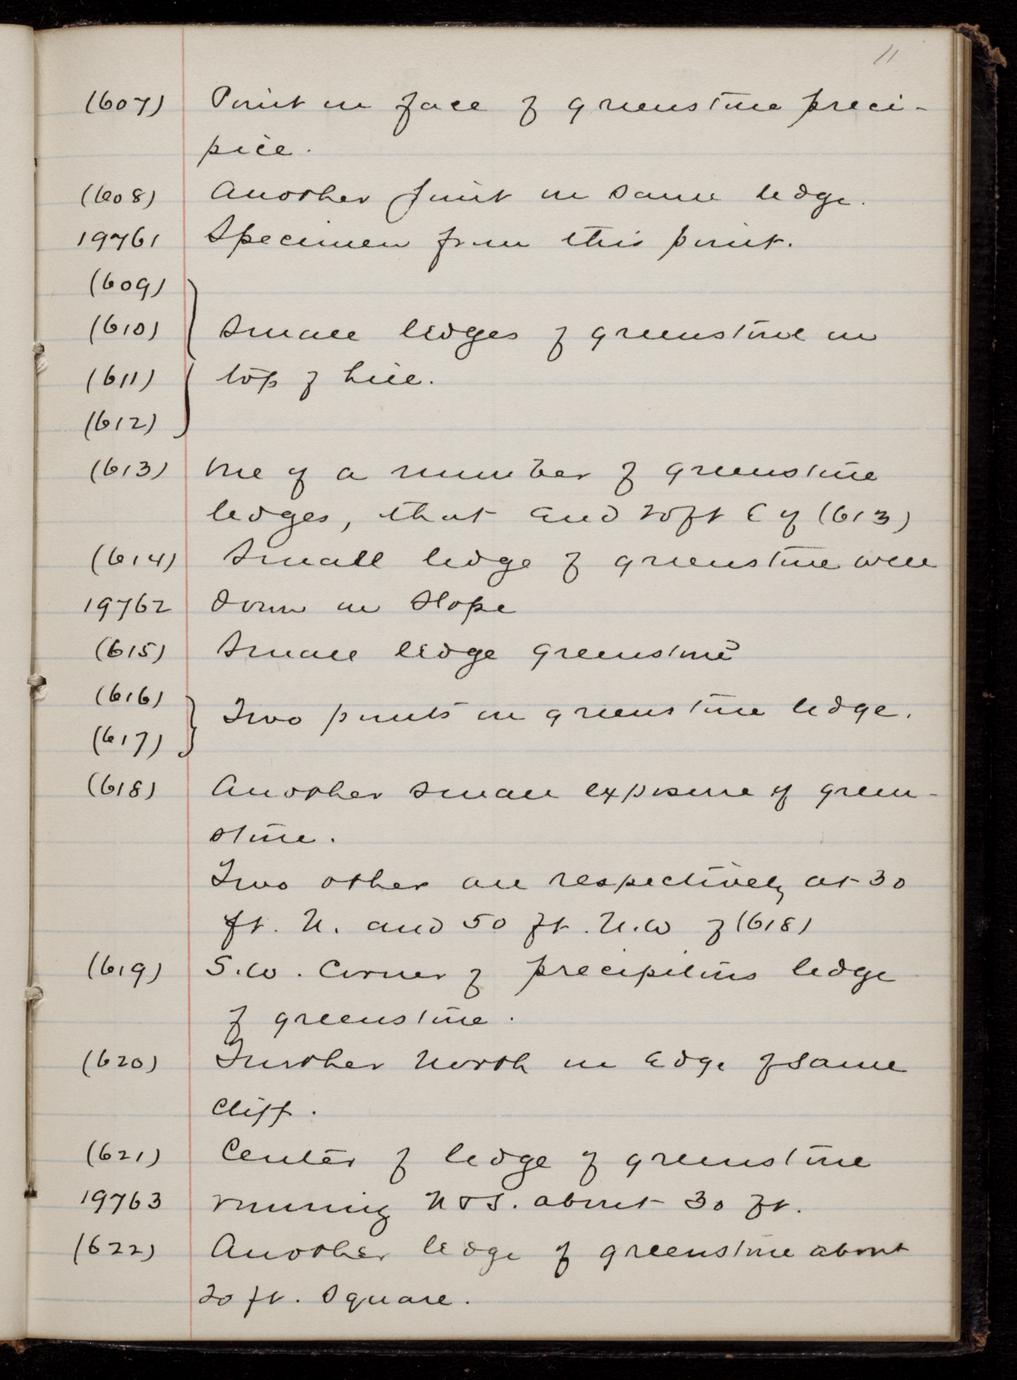 11
(607) Point on face of greenstone preci-
pice.
(608) Another point on same ledge.
19761 Specimen from this point.
(609)
(610) Small ledges of greenstone on
(611) top of hill.
(612)
(613) One of a number of greenstone
ledges, that and 20ft E of (613)
(614) Small ledge of greenstone well
19762 down on slope
(615) Small ledge greenstone
(616) Two points on greenstone ledge.
(617)
(618) Another small exposure of green-
stone.
Two other are respectively at 30
ft. N. and 50 ft. N.W of (618)
(619) S.W. Corner of precipitous ledge
of greenstone.
(620) Further North on edge of same
cliff.
(621) Center of ledge of greenstone
19763 running N & S. about 30 ft.
(622) Another ledge of greenstone about
20 ft. square.